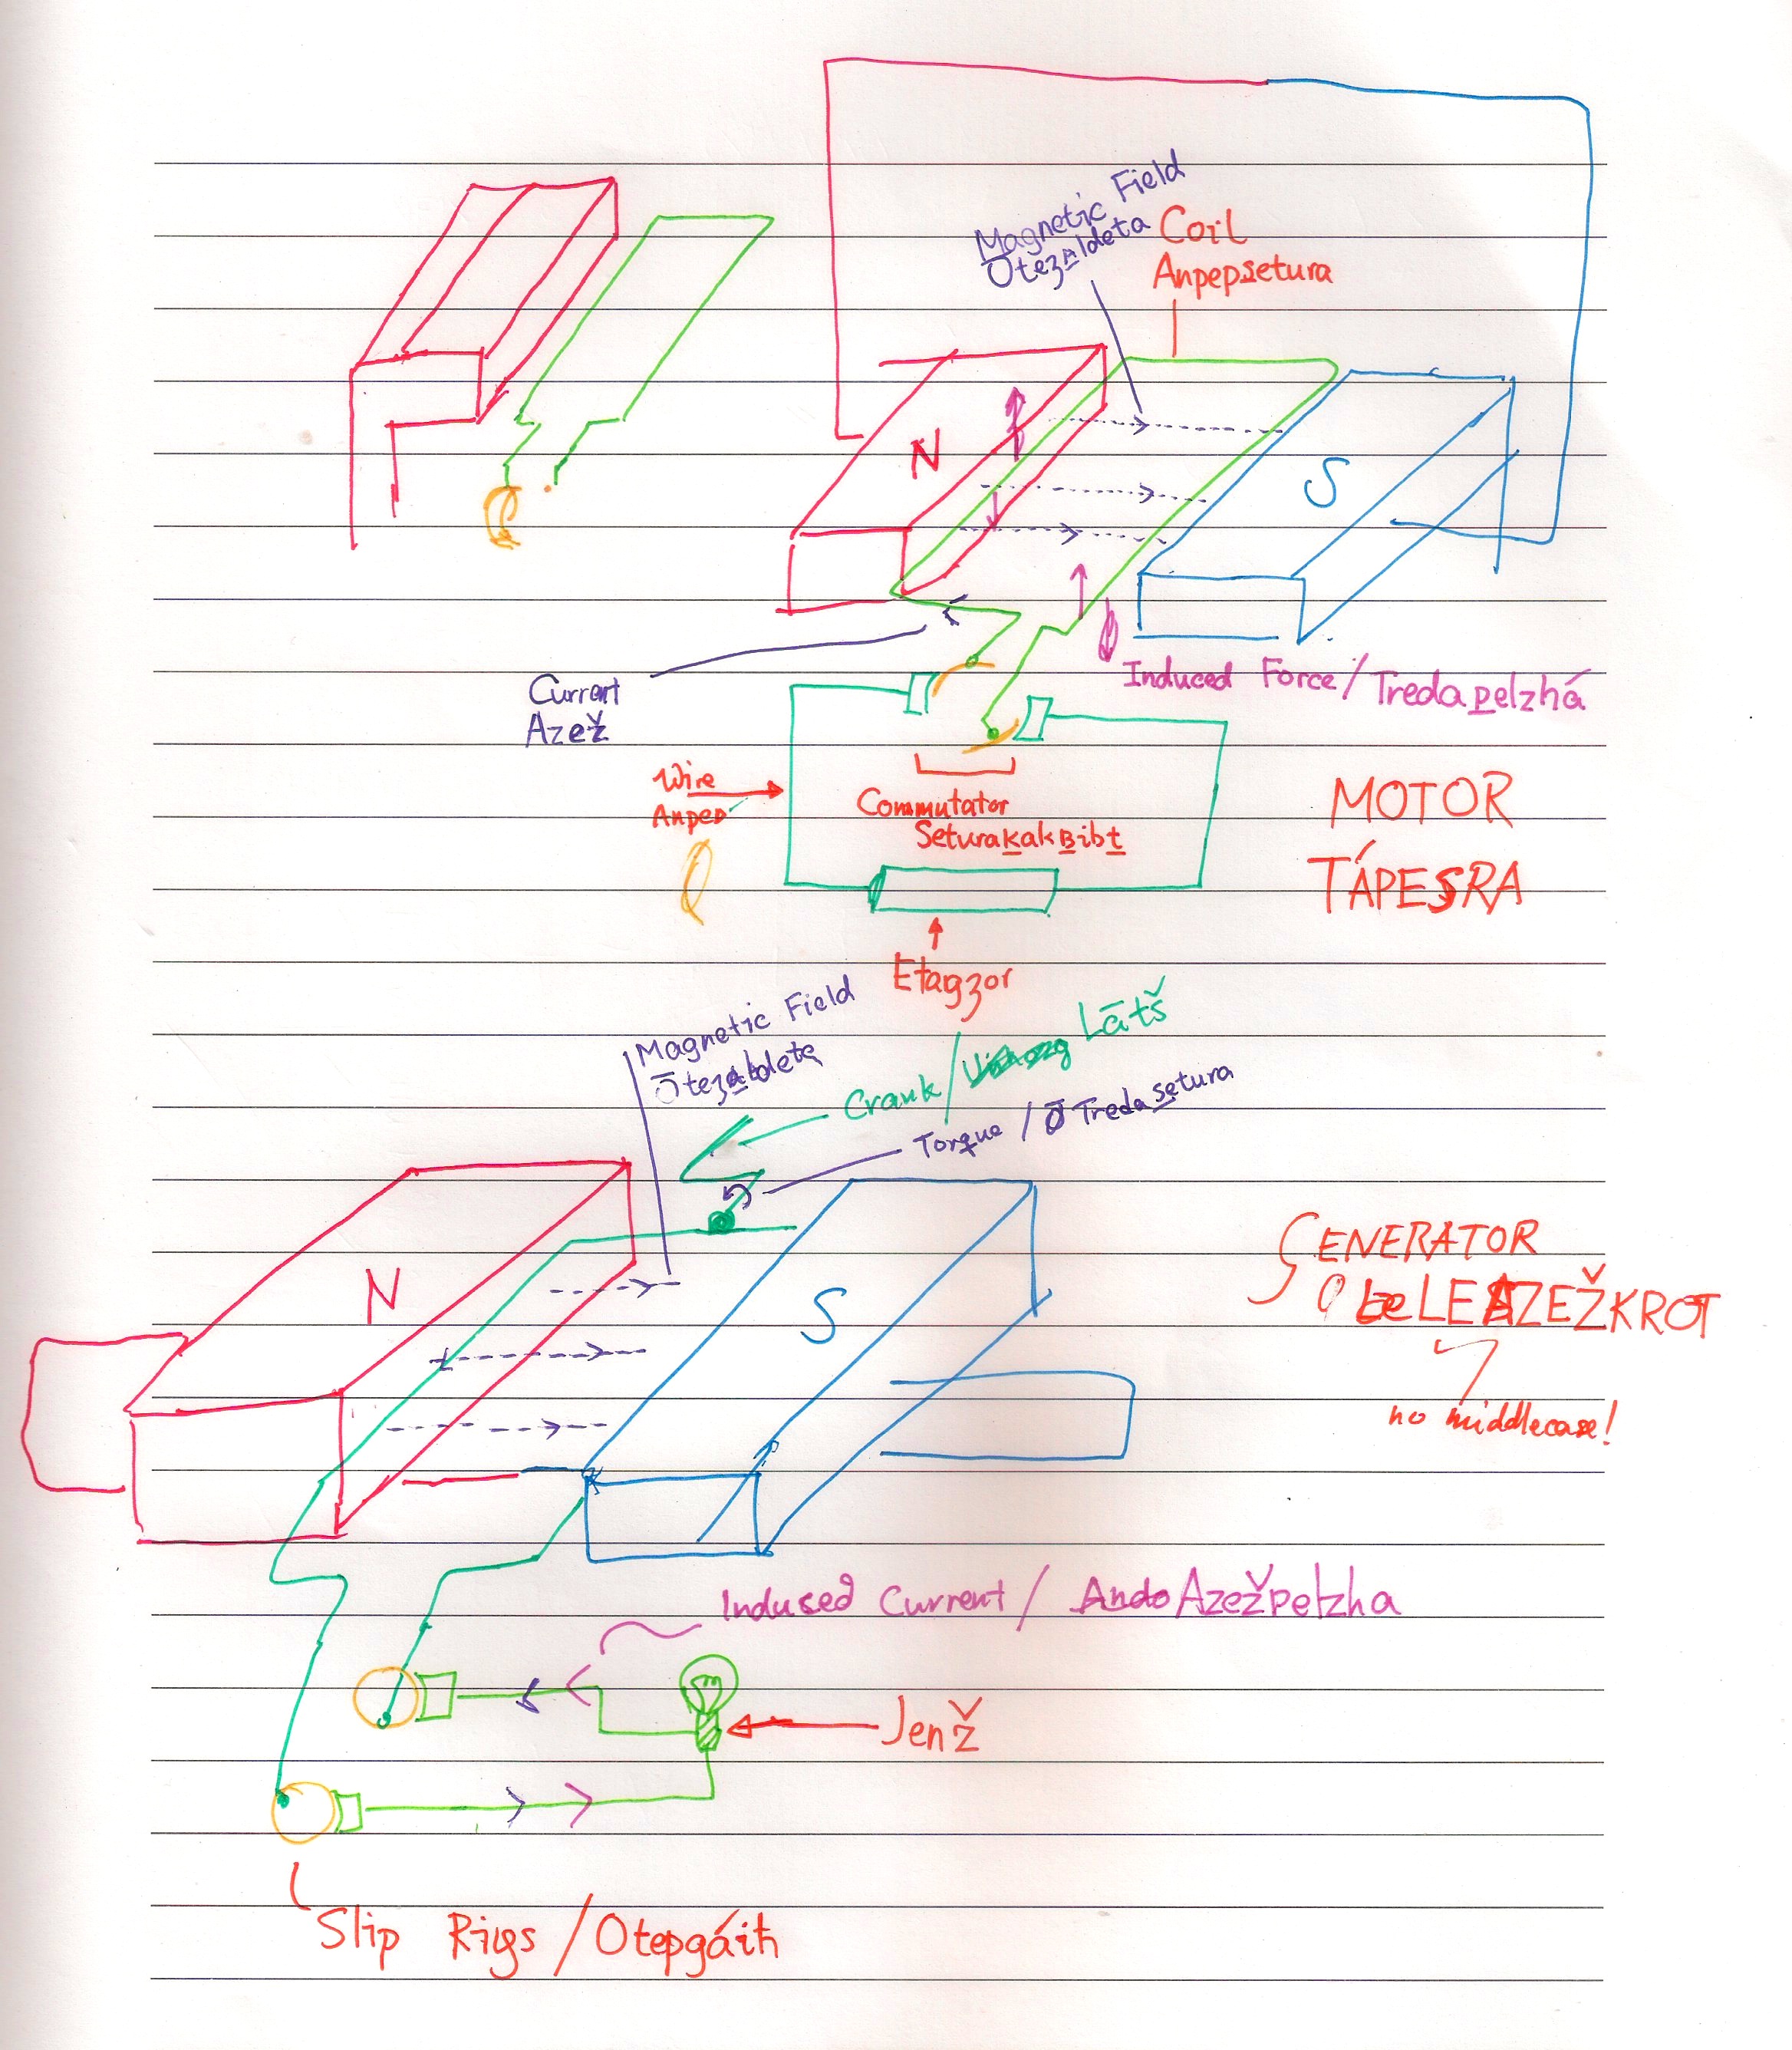 Magnetic Field
Ōtezaldeta
Coil
Anpepsetura
N
S
Current
Azež
Induced Force / Tredapelzhá
Wire
Anpep
Commutator
Seturakakbibt
MOTOR
TÁPESRA
Etagzor
Magnetic Field
Crank / Lātš
Torque / Tredasetura
N
S
GENERATOR
LEAZEŽKROT
no middlecase!
Induced Current / AzežPelzha
Jenž
Slip Rigs / Otepgáith